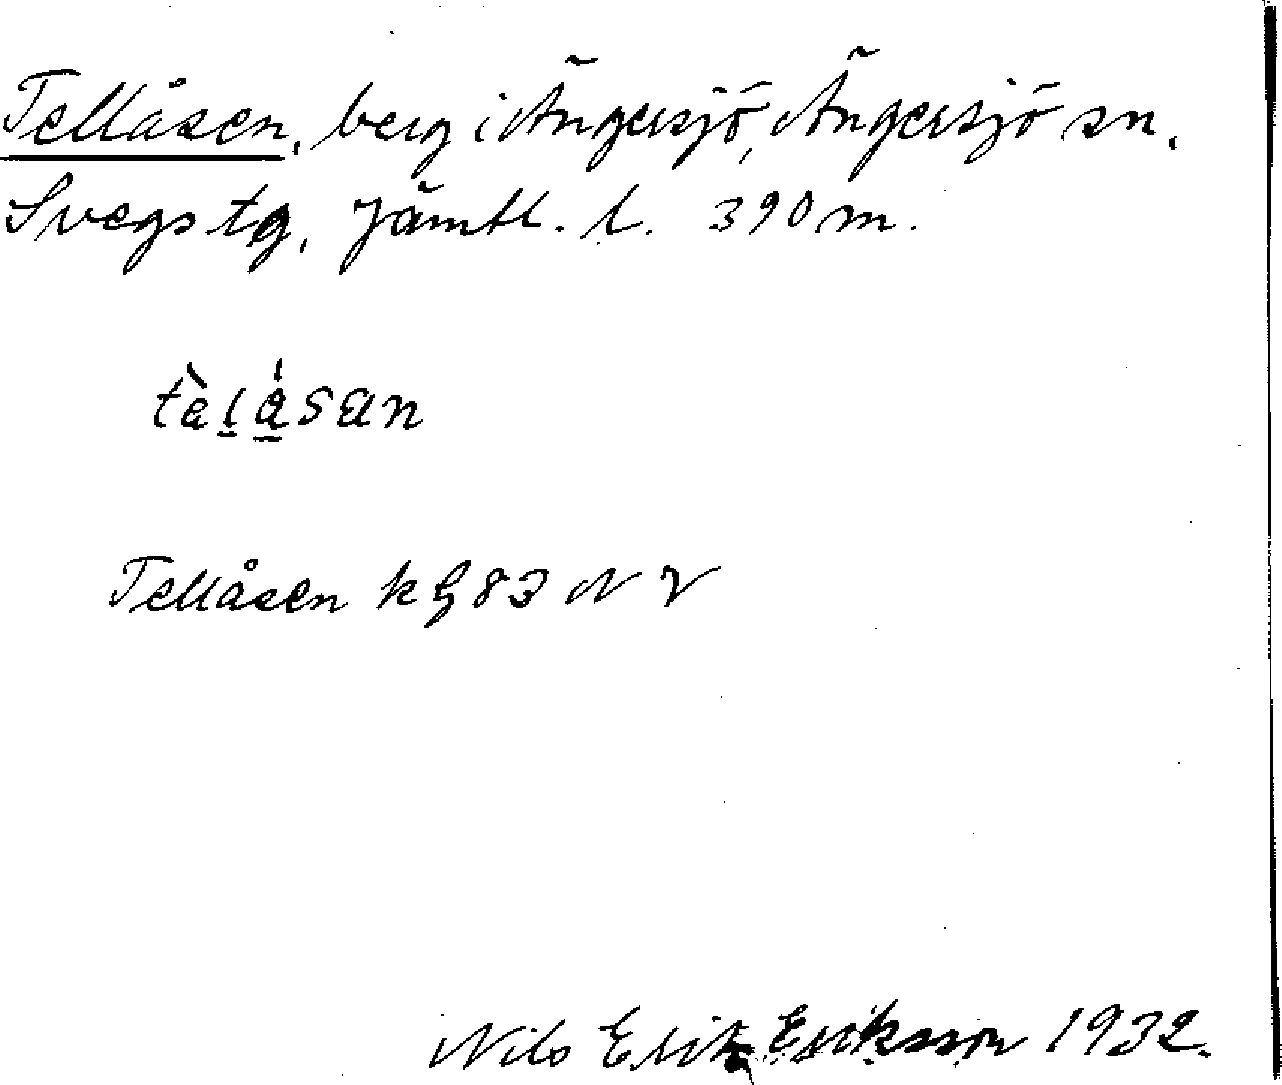 Tellåsen, berg i Ängersjö, Ängersjö sn,
Svegs tg, Jämtl. l. 390 m.
tèlåsan
Tellåsen k G 83 NV
Nils Erik Eriksson 1932.